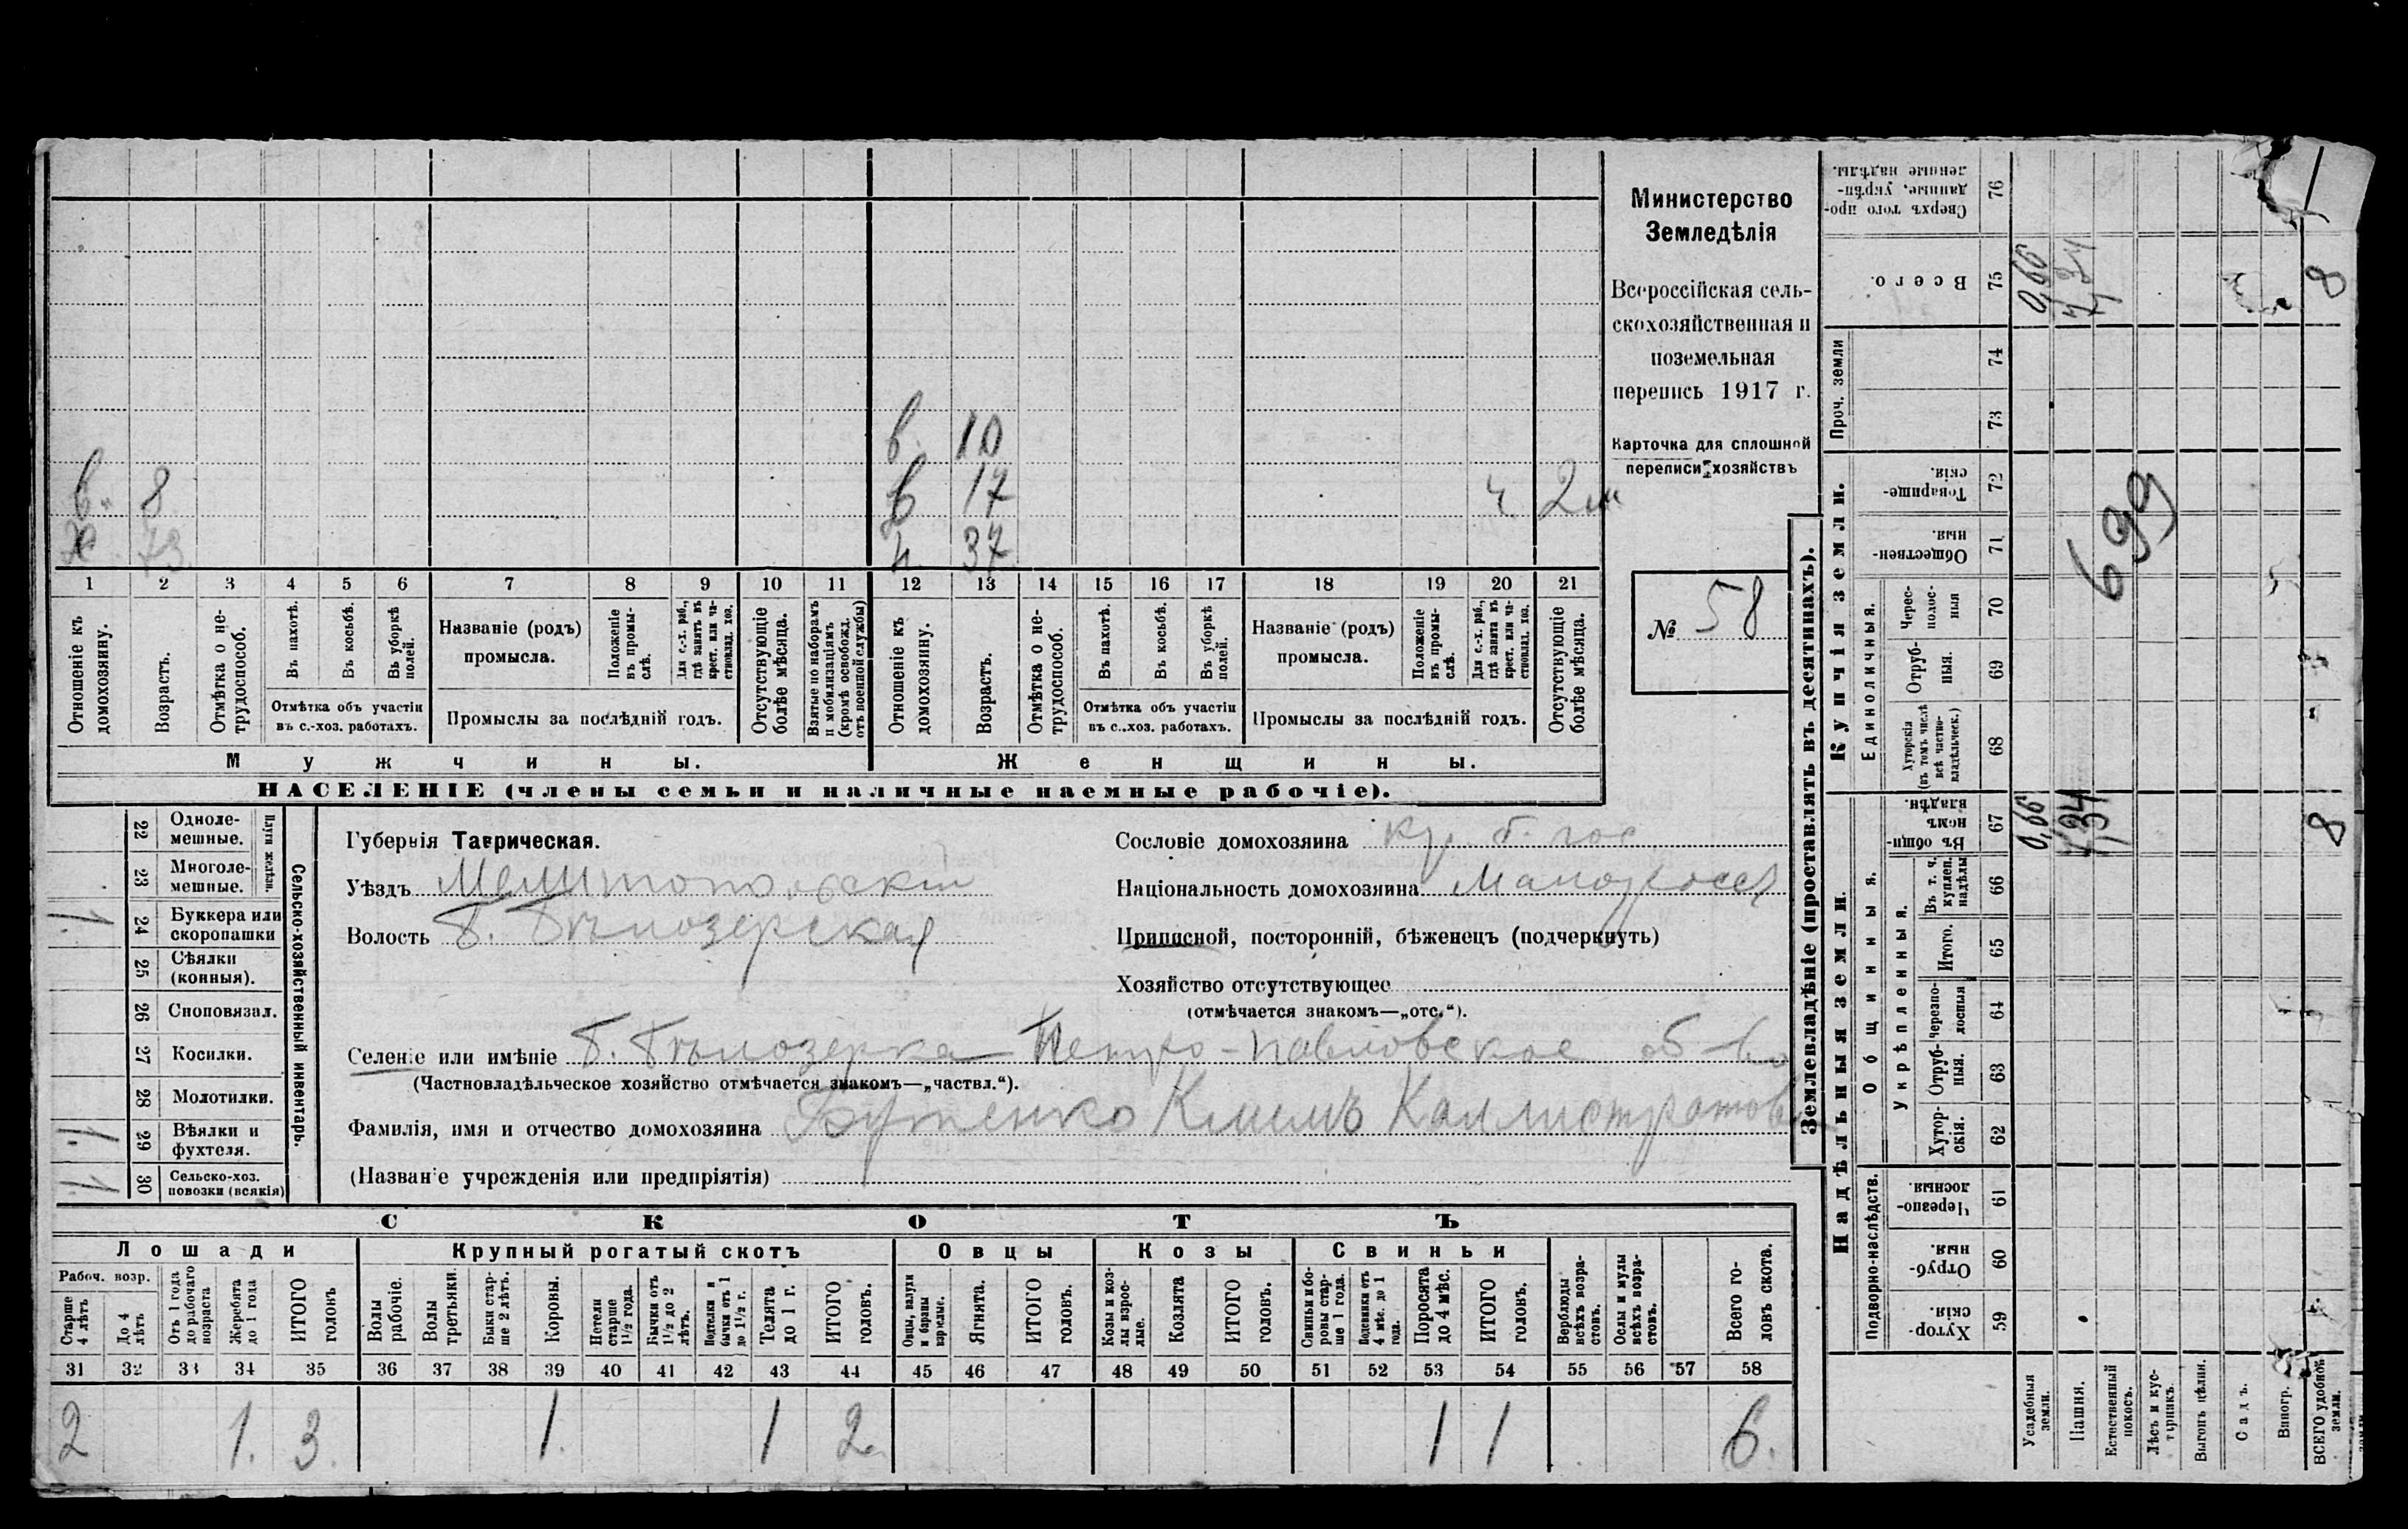 Министерство
Земледѣлія
Всероссійская сель-
скохозяйственная и
поземельная
перепись 1917 г.
Карточка для сплошной
переписи хозяйствъ
№ 58
в. 10
в. 8
в 17 ч. 2 м
х 73
37
1 2 3 4 5 6 7 8 9 10 11 12 13 14 15 16 17 18 19 20 21
Отношеніе къ домохозяину.
Возрастъ.
Отмѣтка о не-трудоспособ.
Въ пахотѣ.
Въ косьбѣ.
Въ уборкѣ полей.
Отмѣтка объ участіи въ с.-хоз. работахъ.
Названіе (родъ) промысла.
Положеніе въ промы-слѣ.
Для с.-х. раб., гдѣ занятъ въ крест. или ча-стновлад. хоз.
Промыслы за послѣдній годъ.
Отсутствующіе болѣе мѣсяца.
Взятые по наборамъ и мобилизаціямъ (кромѣ освобожд. отъ военной службы)
Отношеніе къ домохозяину.
Возрастъ.
Отмѣтка о не-трудоспособ.
Въ пахотѣ.
Въ косьбѣ.
Въ уборкѣ полей.
Отмѣтка объ участіи въ с.-хоз. работахъ.
Названіе (родъ) промысла.
Положеніе въ промы-слѣ.
Для с.-х. раб., гдѣ занята въ крест. или ча-стновлад. хоз.
Промыслы за послѣдній годъ.
Отсутствующіе болѣе мѣсяца.
Мужчины.
Женщины.
НАСЕЛЕНІЕ (члены семьи и наличные наемные рабочіе).
Сельско-хозяйственный инвентарь.
Плуги желѣзн.
22 Одноле-мешные.
23 Многоле-мешные.
1 24 Буккера или скоропашки
25 Сѣялки (конныя).
26 Сноповязал.
27 Косилки.
28 Молотилки.
1 29 Вѣялки и фухтеля.
1 30 Сельско-хоз. повозки (всякія)
Губернія Таврическая.
Уѣздъ Мелитопольскій
Волость Б. Бѣлозерская
Сословіе домохозяина кр. б. гос
Національность домохозяина Малоросс
Приписной, посторонній, бѣженецъ (подчеркнуть)
Хозяйство отсутствующее
(отмѣчается знакомъ—„отс.“).
Селеніе или имѣніе Б. Бѣлозерка Петро-Павловское об-во
(Частновладѣльческое хозяйство отмѣчается знакомъ—„частвл.“).
Фамилія, имя и отчество домохозяина Бутенко Климъ Каллистратов
(Названіе учрежденія или предпріятія)
СКОТЪ
Лошади Крупный рогатый скотъ Овцы Козы Свиньи
Рабоч. возр.
Старше 4 лѣтъ
До 4 лѣтъ
Отъ 1 года до рабочаго возраста
Жеребята до 1 года
ИТОГО головъ
Волы рабочіе.
Волы третьяки.
Быки стар-ше 2 лѣтъ.
Коровы.
Нетели старше 1½ года.
Бычки отъ 1½ до 2 лѣтъ.
Подтелки и бычки отъ 1 до 1½ г.
Телята до 1 г.
ИТОГО головъ.
Овцы, валухи и бараны взрослые.
Ягнята.
ИТОГО головъ.
Козы и коз-лы взрос-лые.
Козлята
ИТОГО головъ.
Свиньи и бо-ровы стар-ше 1 года.
Подсвинки отъ 4 мѣс. до 1 года.
Поросята до 4 мѣс.
ИТОГО головъ.
Верблюды всѣхъ возра-стовъ.
Ослы и мулы всѣхъ возра-стовъ.
Всего го-ловъ скота.
31 32 33 34 35 36 37 38 39 40 41 42 43 44 45 46 47 48 49 50 51 52 53 54 55 56 57 58
2 1. 3 1. 1 2 1 1 6.
Землевладѣніе (проставлять въ десятинахъ).
Надѣльныя земли.
Купчія земли.
Проч. земли
Подворно-наслѣдств.
Общинныя.
Укрѣпленныя.
Единоличныя.
Сверхъ того про-данные, укрѣп-ленные надѣлы. 76
Всего. 75 0,66 7,34 8
74
73
Товарище-скія. 72
Обществен-ныя. 71
Черес-полос-ныя 70
Отруб-ныя. 69
Хуторскія (въ томъ числѣ всѣ частно-владѣльческ.) 68
Въ общин-номъ владѣн. 67 0,66 7,34 8
Въ т. ч. куплен. надѣлы 66
Итого. 65
Черезпо-лосныя 64
Отруб-ныя. 63
Хутор-скія. 62
Черезпо-лосныя. 61
Отруб-ныя. 60
Хутор-скія. 59
699
1
Усадебныя земли.
Пашня.
Естественный покосъ.
Лѣсъ и кус-тарникъ.
Выгонъ цѣлин.
Садъ.
Виногр.
ВСЕГО удобной земли.